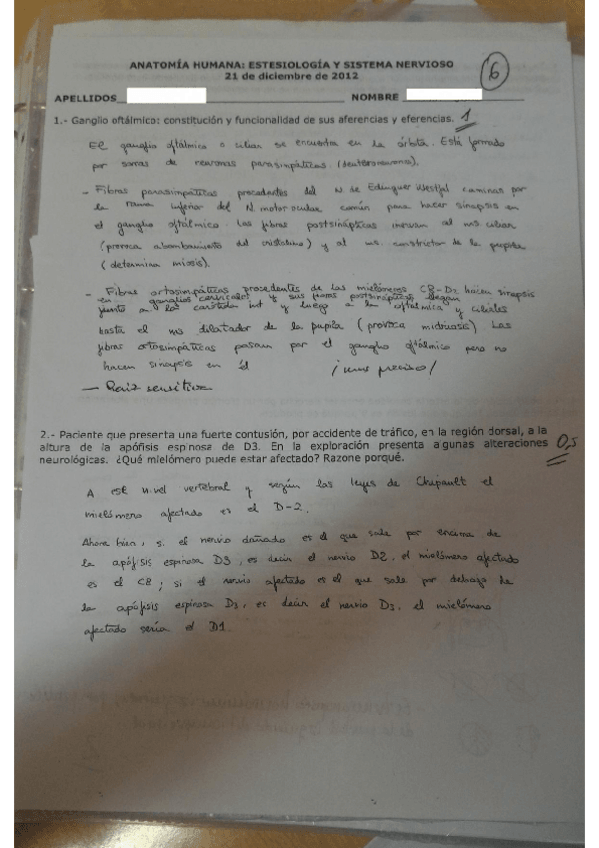 ANATOMÍA HUMANA: ESTESIOLOGÍA Y SISTEMA NERVIOSO
21 de diciembre de 2012
6
APELLIDOS NOMBRE
1.- Ganglio oftálmico: constitución y funcionalidad de sus aferencias y eferencias. 1
El ganglio oftálmico o ciliar se encuentra en la órbita. Está formado
por somas de neuronas parasimpáticas. (deuteroneurona).
- Fibras parasimpáticas procedentes del N de Edinguer Westfal caminan por
la rama inferior del N. motor ocular común para hacer sinapsis en
el ganglio oftálmico. Las fibras postsinápticas inervan al ms ciliar
(provoca abombamiento del cristalino) y al ms. constrictor de la pupila
(determina miosis).
- Fibras ortosimpáticas procedentes de los mielómeros C8-D2 hacen sinapsis
en ganglios cervicales y sus fibras postsinápticas llegan
junto a la carótida int y luego a la oftálmica y ciliares
hasta el ms dilatador de la pupila (provoca midriasis) Las
fibras ortosimpáticas pasan por el ganglio oftálmico pero no
hacen sinapsis en él ¡ preciso!
- Raiz sensitiva
2.- Paciente que presenta una fuerte contusión, por accidente de tráfico, en la región dorsal, a la
altura de la apófisis espinosa de D3. En la exploración presenta algunas alteraciones 0,5
neurológicas. ¿Qué mielómero puede estar afectado? Razone porqué.
A este nivel vertebral y según las leyes de Chipault el
mielómero afectado es el D-2.
Ahora bien, si el nervio dañado es el que sale por encima de
la apófisis espinosa D3, es decir el nervio D2, el mielómero afectado
es el C8; si el nervio afectado es el que sale por debajo de
la apófisis espinosa D3, es decir el nervio D3, el mielómero
afectado sería el D1.